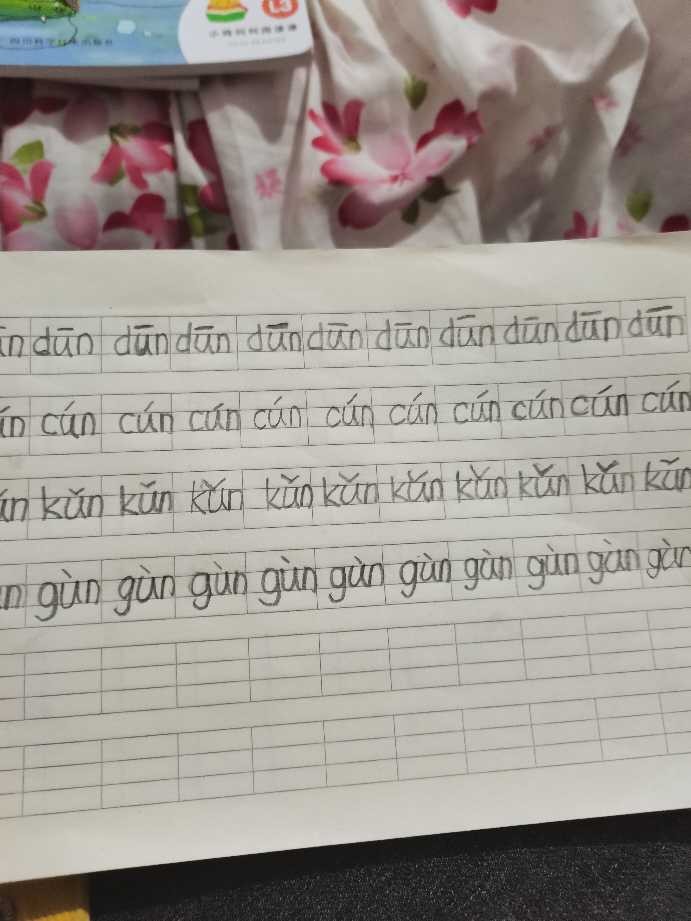 四川科学技术出版社
L3
小鸡叫叫阅读课
n dūn dūn dūn dūn dūn dūn dūn dūn dūn dūn
n cún cún cún cún cún cún cún cún cún cún
n kǔn kǔn kǔn kǔn kǔn kǔn kǔn kǔn kǔn kǔn
n gùn gùn gùn gùn gùn gùn gùn gùn gùn gùn